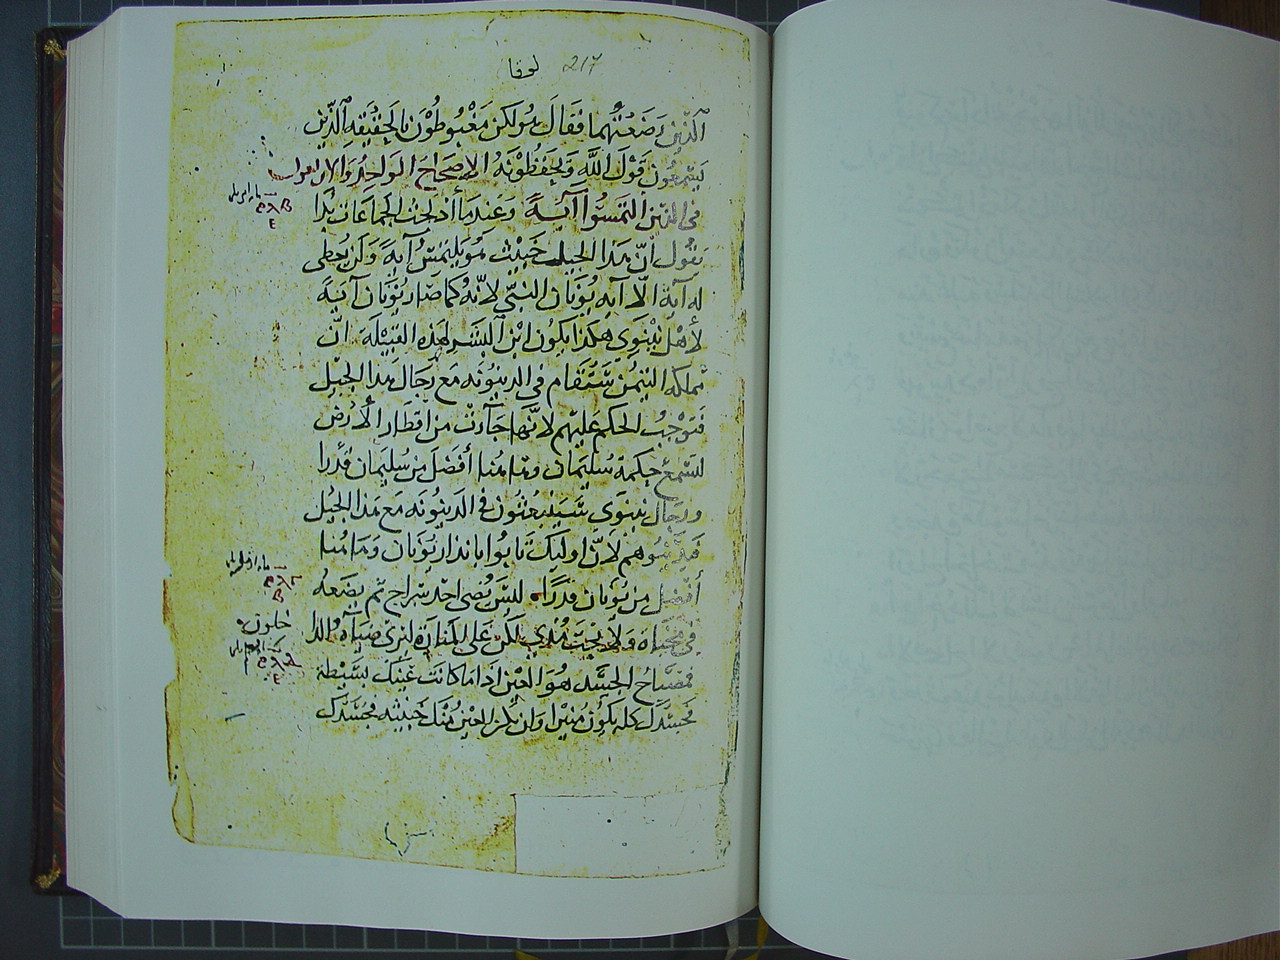 لوقا 217
الَّذَيْن رَضَعْتُهما فقَالَ هُو لكن مَغْبُوطُوْن بالحَقِيقه الَّذين
يَسْمَعُون قَوْلَ اللَّهِ وَيحفَظُوْنَهُ الاصحَاحَ الوَاحِد وَالاربعوا
في الذين التمسُوا آيَةً وَعندمَا أزدحمت الجمَاعَات بَدَا
يَقُول أنّ هَذا الجيل خَبيْث هُو يلتمسُ آيهً وَلَن يُعطى
له آيَة الّا آيه يُونَان النبيّ لانّهُ كمَا صَار يُوْنَان آيَةً
لأهْل نِيْنَوى هكَذا يكُون ابْن البَشَر لهَذِه القبيْلَة انّ
مَملكَه التيْمُن سَتُقَام في الدينُونَه مَع رجَال هَذا الجِيْل
فَتوجبُ الحكم عَليْهم لانّهَا جَآءت مِن أقطَار الأرْض
لتسْمع حكمة سُليمَان وَهَاهُنا أفضَل من سُليمَان قَدْرا
وَرجَال نينوَى سَيَنبعثُون في الدَينُونَه مَع هَذا الجيْل
لانّ اوليك تَابُوا بانذار يُوْنَان وَهَاهُنا
أفضَل مِن يُونَان قَدرًا ليْسَ يُضى احَد سراج ثم يَضعهُ
في وَلا تحت مُدّي لكن على المنَارَة لنرَى ضيَآه
فمصْبَاحُ الجسَد هُوَ العَيْن اذا مَا كانَت عَينك بَسيْطة
فجسَدك كله يَكُوْن مُنيْرا وَان تكن العَين منْك خَبيثه فجسَدك
خلون